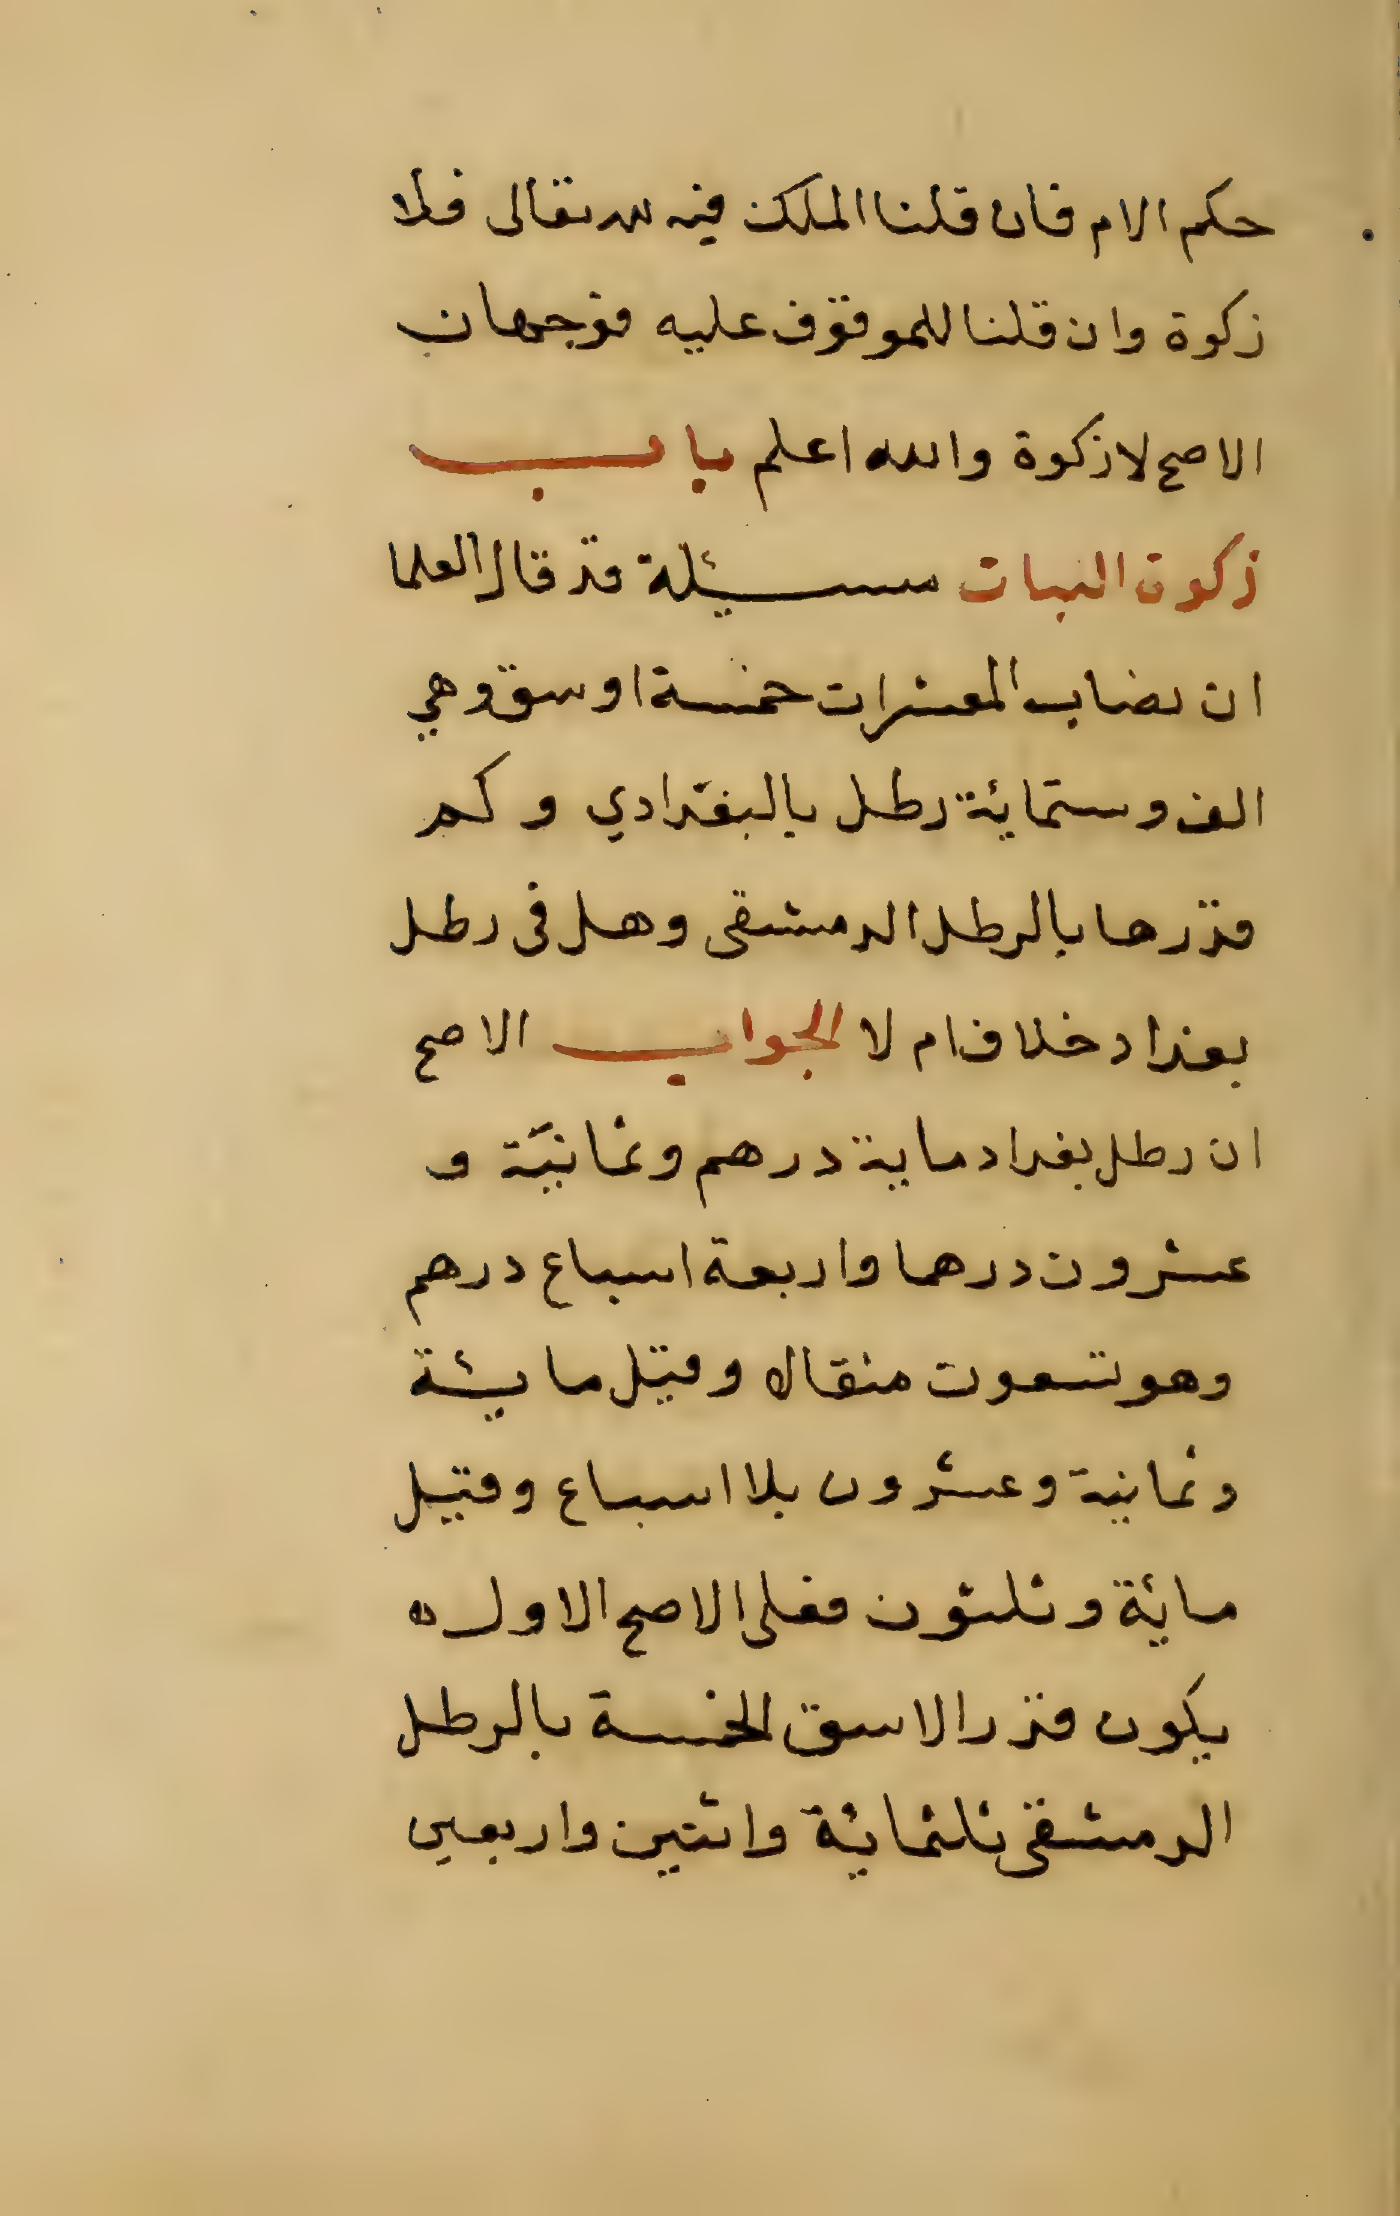 حكم الام فان قلنا الملك فيه لله تعالى فلا
زكوة وان قلنا للموقوف عليه فوجهان
الاصح لا زكوة والله اعلم باب
زكوة النبات مسيئلة قد قال العلما
ان نصاب المعشرات خمسة اوسق وهي
الف وستمايئة رطل بالبغدادي وكم
قدرها بالرطل الدمشقى وهل فى رطل
بغداد خلاف ام لا الجواب الاصح
ان رطل بغداد ماية درهم وثمانيّة و
عشرون درهما واربعة اسباع درهم
وهو تسعون مثقال وقيل مايئة
وثمانية وعشرون بلا اسباع وقيل
مايئة وثلثون فعلى الاصح الاول ه
يكون قدر الاسق الخمسة بالرطل
الدمشقى ثلثمايئة واثنين واربعين